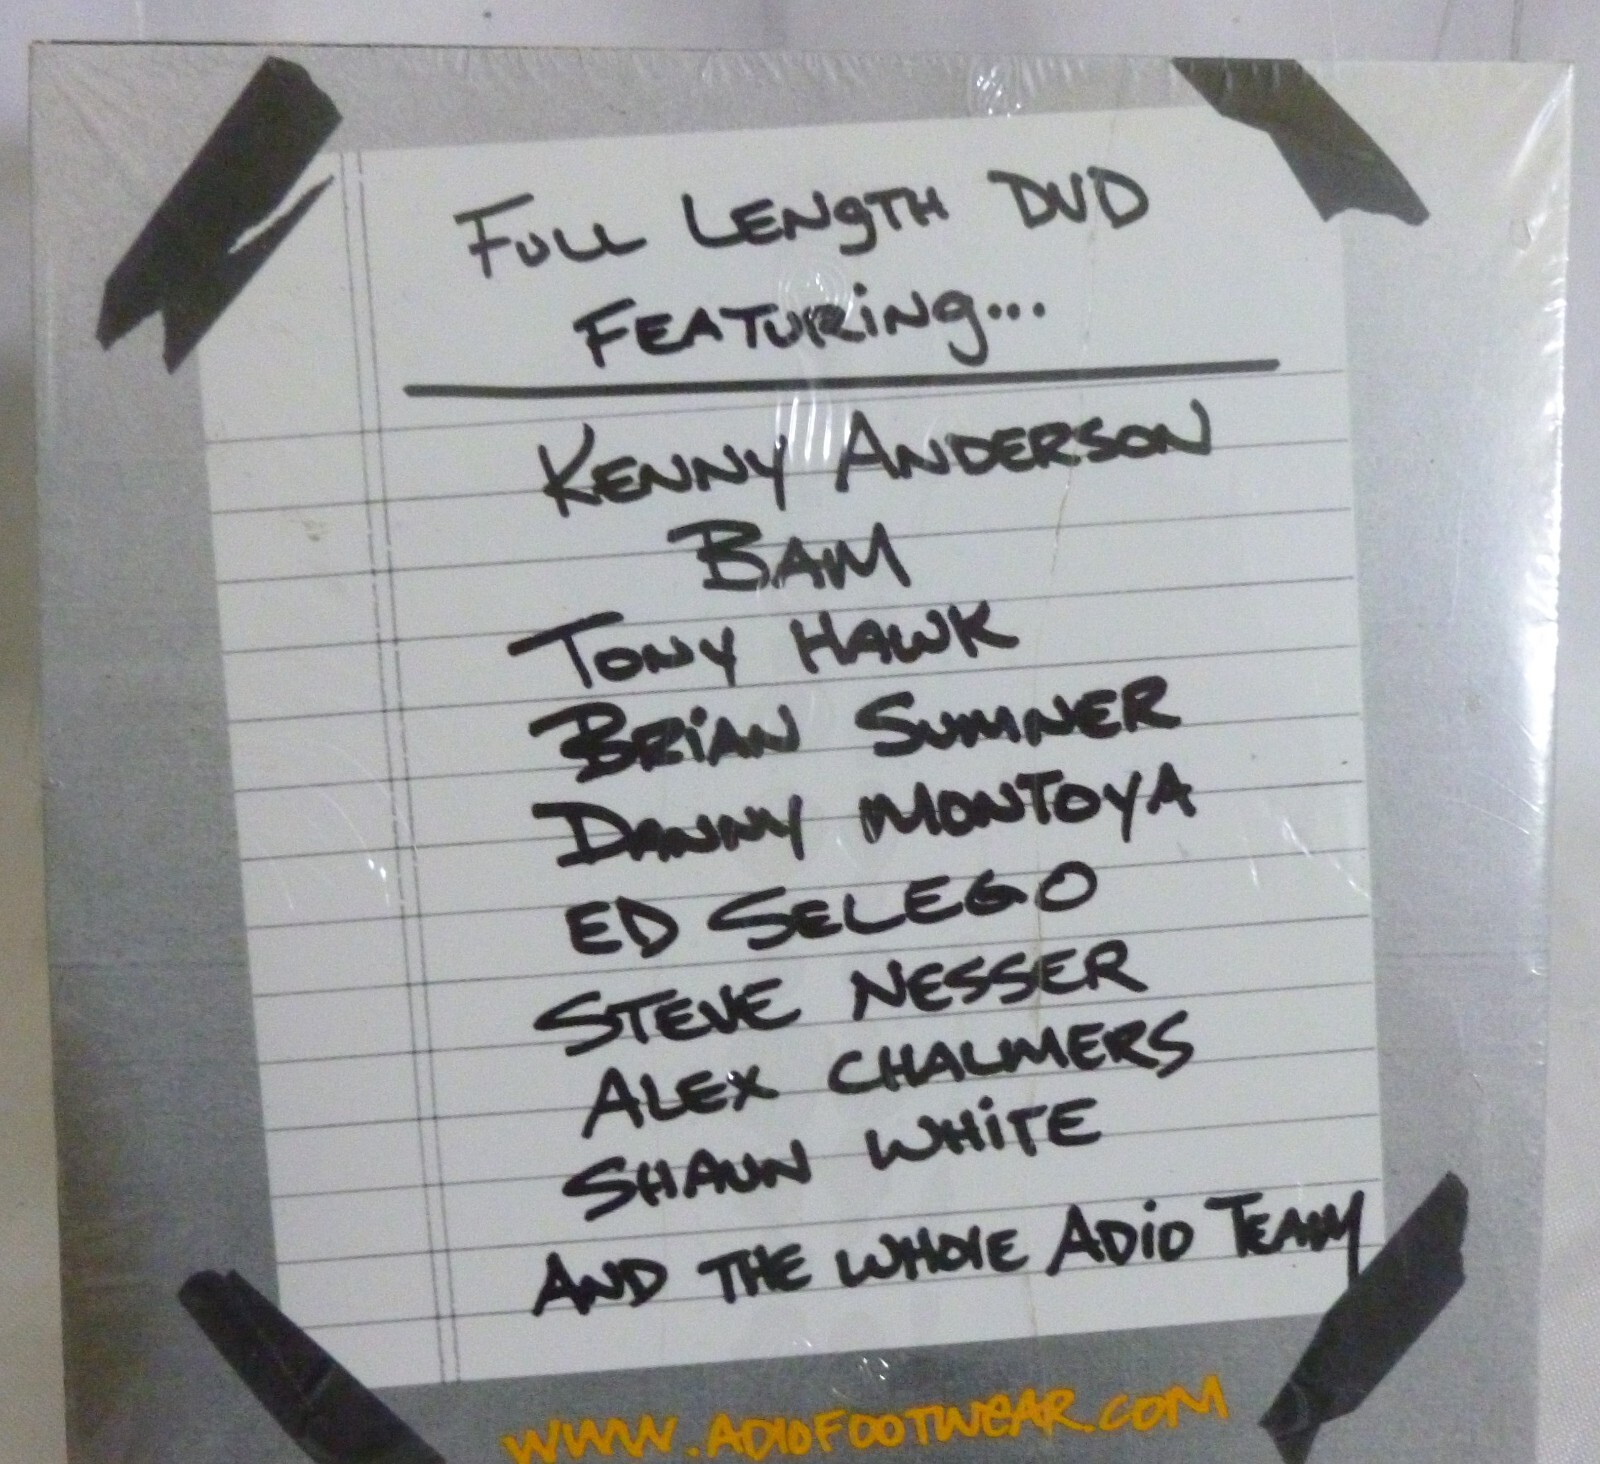 FULL LENgTH DVD
FEATURiNg...
KENNY ANDERSON
BAM
TONY HAWK
BRiAN SUMNER
DANNY MONTOYA
ED SELEGO
STEVE NESSER
ALEX CHALMERS
SHAUN WHiTE
AND THE WHOLE ADiO TEAM
WWW.ADIOFOOTWEAR.COM